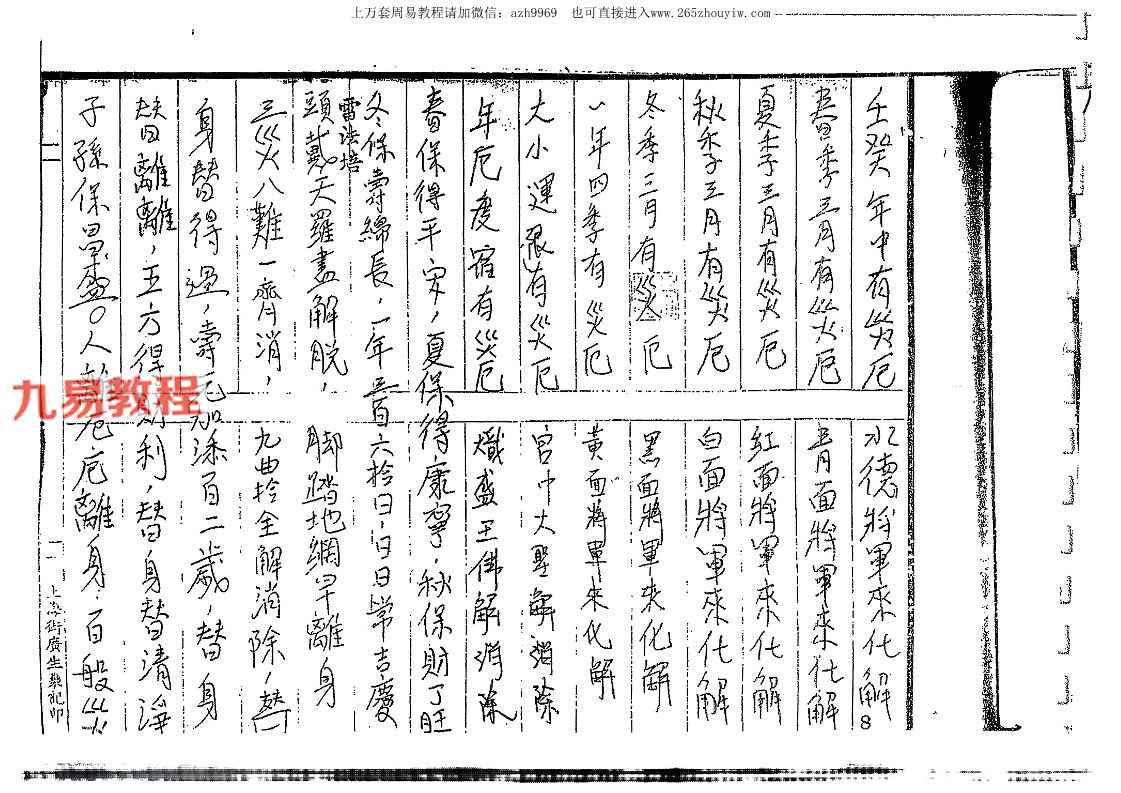 上万套周易教程请加微信：azh9969　也可直接进入www.265zhouyiw.com
壬癸年中有災厄　水德將軍來化解8
春季三月有災厄　青面將軍來化解
夏季三月有災厄　紅面將軍來化解
秋季三月有災厄　白面將軍來化解
冬季三月有災厄　黑面將軍來化解
一年四季有災厄　黃面將軍來化解
大小運限有災厄　宮中大聖解消除
年厄度宿有災厄　熾盛王佛解消除
春保得平安，夏保得康寧，秋保財丁旺
冬保壽綿長，一年百六拾日，日日常吉慶
雷法培
頭戴天羅盡解脫，腳踏地網早離身
三災八難一齊消，九曲拾全解消除，替
身替得過，壽元加添百二歲，替身
替離離，五方得財利，替身替清淨
子孫保昌盛〇人厄厄離身，百般災
九易教程